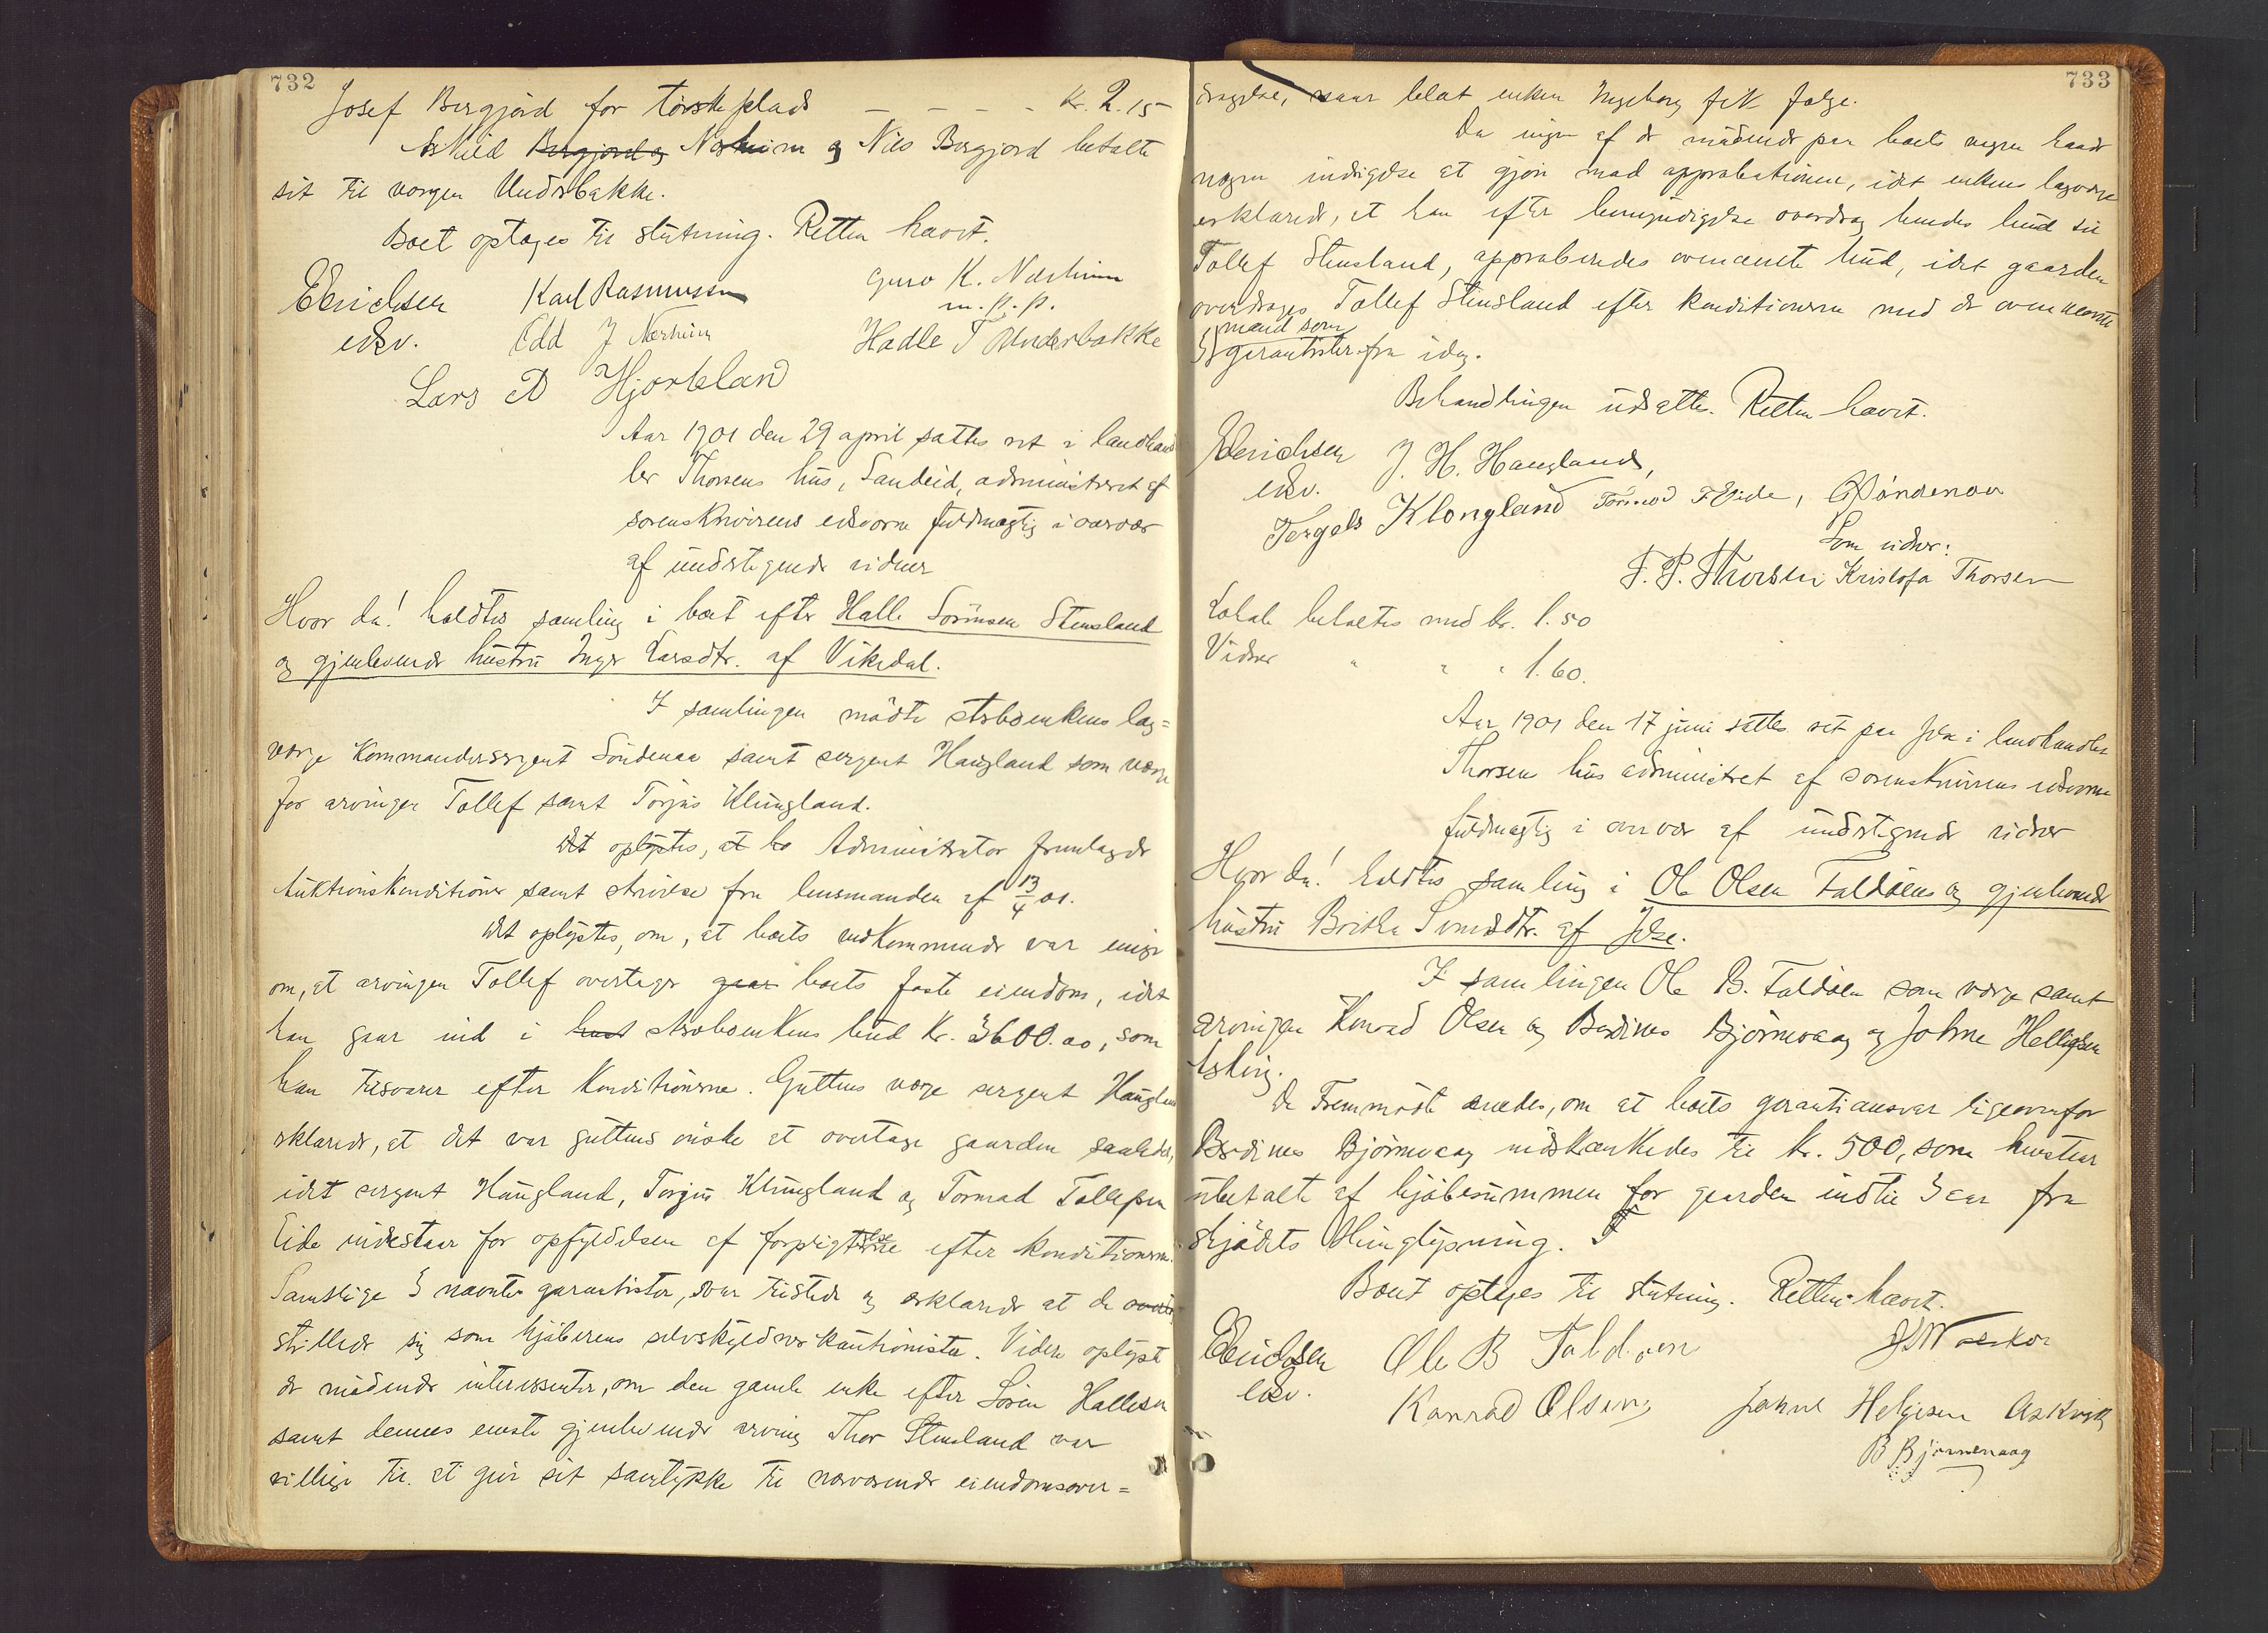 732
Josef Bergjord for torskeplads — — — - Kr. 2.15
Askild Bergjord og Nærheim og Nils Bergjord betalte
sit til vergen Underbakke.
Boet optages til slutning. Retten hævet.
Eerichsen Karl Rasmussen Guro K. Nærheim
m. p. p.
edsv. Odd J Nærheim Hadle T Underbakke
Lars A Hjorteland
Aar 1901 den 29 april sattes ret i landhand
ler Thorsens hus, Sandeid, administreret af
sorenskriverens edsvorne fuldmægtig i overvær
af undertegnede vidner
Hvor da! holdtes samling i boet efter Halle Sørensen Stensland
og gjenlevende hustru Inger Larsdtr. af Vikedal.
I samlingen mødte stervboenkens lag=
værge kommandersergent Søndenaa samt sergent Haugland som værge
for arvingen Tollef samt Torjus Klungland.
Det oplystes, at bo Administrator fremlagde
Auktionskonditioner samt skrivelse fra lensmanden af 13/4 01.
Det oplystes, om, at boets vedkommende var enige
om, at arvingen Tollef overtager gaar boets faste eiendom, idet
han gaar ind i bud stervboenkens bud Kr. 3600.00, som
han tilsvarer efter Konditionerne. Guttens værge sergent Haugland
erklærede, at det var guttens ønske at overtage gaarden saaledes,
idet sergent Haugland, Torjus Klungland og Tormod Tollefsen
Eide indestaar for opfyldelsen af forpligtelse efter konditionerne.
Samtlige 3 nævnte garantister, var tilstede og erklærede at de
stillede sig som kjøberens selvskyldnerkautionister. Videre oplyst
de mødende interessenter, om den gamle enke efter Søren Hallesen
samt dennes eneste gjenlevende arving Thor Stensland var
villige til at give sit samtykke til nærværende eiendomsover=
733
dragelse, naar blot enken Ingeborg fik følge.
Da ingen af de mødende paa boets vegne havde
nogen indsigelse at gjøre mod approbationen, idet enkens lagværge
erklærede, at han efter bemyndigelse overdrog hendes bud til
Tollef Stensland, approberedes ovennævnte bud, idet gaarden
overdrages Tollef Stensland efter konditionerne med de ovennævnte
mænd som
3 garantister fra idag.
Behandlingen udsattes. Retten hævet.
Eerichsen J. H. Haugland,
edsv. Torgels Klongland Tormod T Eide, Søndenaa
Som vidner:
T. P. Thorsen Kristofa Thorsen
Lokale betaltes med kr. 1.50
Vidner " " " 1.60.
Aar 1901 den 17 juni sattes ret paa Jelse i landhandler
Thorsen hus administret af sorenskriverens edsvorne
fuldmægtig i overvær af undertegnede vidner
Hvor da! holdtes samling i Ole Olsen Faldøens og gjenlevende
hustru Britha Svendsdtr. af Jelse.
I samlingen Ole B. Faldøen som værge samt
arvingen Konrad Olsen og Berdines Bjørnevaag og Johne Helligsen
Askvig.
De Fremmødte enedes, om at boets garantiansvar ligeoverfor
Berdines Bjørnevaag indskrænkedes til kr. 500, som henstaar
ubetalt af kjøbesummen for gaarden indtil 3 aar fra
skjødets thinglysning.
Boet optages til slutning. Retten hævet.
Eerichsen Ole B Faldøen
edsv. Konrad Olsen Johne Helgesen Askvig
B Bjørnevaag